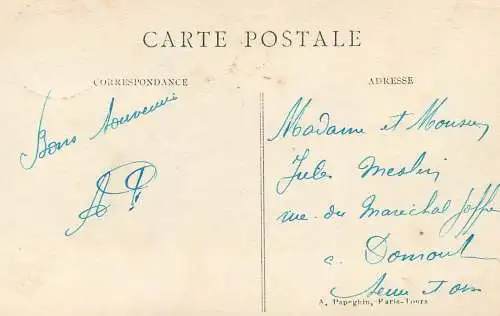 CARTE POSTALE
CORRESPONDANCE
ADRESSE
Bons Souvenirs
AP
Madame et Monsieur
Jules Meslin
rue du Maréchal Joffre
à Domont
Seine et Oise
A. Papeghin, Paris-Tours